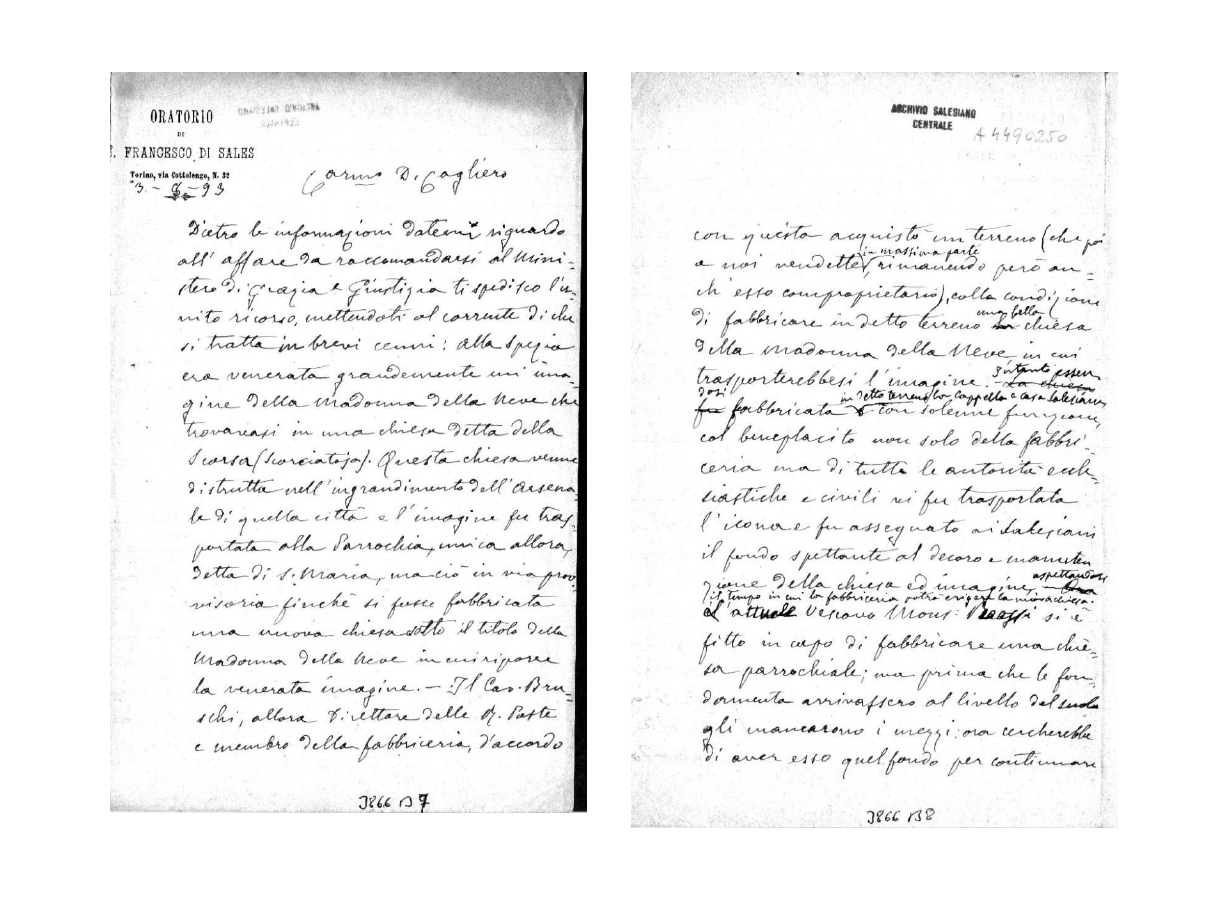 ORATORIO
DI
S. FRANCESCO DI SALES
Torino, via Cottolengo, N. 32
3 - 8 - 93
Carmo D. Cagliero
Dietro le informazioni datemi riguardo
all' affare da raccomandarsi al Mini-
stero di Grazia e Giustizia ti spedisco l'u-
nito ricorso, mettendoti al corrente di che
si tratta in brevi cenni: Alla Spezia
era venerata grandemente un' ima-
gine della Madonna della Neve che
trovavasi in una chiesa detta della
Scorsa (Scorciatoja). Questa chiesa venne
distrutta nell' ingrandimento dell' Arsena-
le di quella città e l' imagine fu tras-
portata alla Parrochia, unica allora,
detta di S. Maria, ma ciò in via prov-
visoria finchè si fosse fabbricata
una nuova chiesa sotto il titolo della
Madonna della Neve in cui riporre
la venerata imagine. - Il Cav. Bru-
schi, allora Direttore delle R. Poste
e membro della fabbriceria, d'accordo
3866 B 7
ARCHIVIO SALESIANO
CENTRALE
A 4490250
con questa acquistò un terreno (che poi
a noi vendette in massima parte rimanendo però an-
ch' esso comproprietario), colla condizione
di fabbricare in detto terreno una bella chiesa
della Madonna della Neve in cui
trasporterebbesi l' imagine. - La chiesa Intanto essen-
dosi
fu fabbricata in detto terreno la cappella e casa Salesiana, con solenne funzione,
col beneplacito non solo della fabbri-
ceria ma di tutte le autorità eccle-
siastiche e civili vi fu trasportata
l' icona e fu assegnato ai Salesiani
il fondo spettante al decoro e manuten-
zione della chiesa ed imagine, aspettandosi
il tempo in cui la fabbriceria potrà erigere la nuova chiesa.
L' attuale Vescovo Mons: si è
fitto in capo di fabbricare una chie-
sa parrochiale; ma prima che le fon-
damenta arrivassero al livello del suolo
gli mancarono i mezzi; ora cercherebbe
di aver esso quel fondo per continuare
3866 B 8